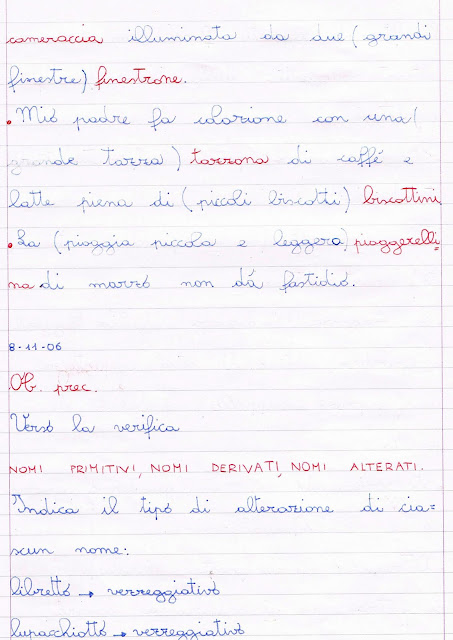 cameraccia illuminata da due (grandi
finestre) finestrone.
. Mio padre fa colazione con una (
grande tazza) tazzona di caffé e
latte piena di (piccoli biscotti) biscottini
. La (pioggia piccola e leggera) pioggerelli=
na di marzo non dá fastidio.
8-11-06
Ob. prec.
Verso la verifica
NOMI PRIMITIVI, NOMI DERIVATI, NOMI ALTERATI.
Indica il tipo di alterazione di cia=
scun nome:
libretto → verreggiativo
lupacchiotto → verreggiativo